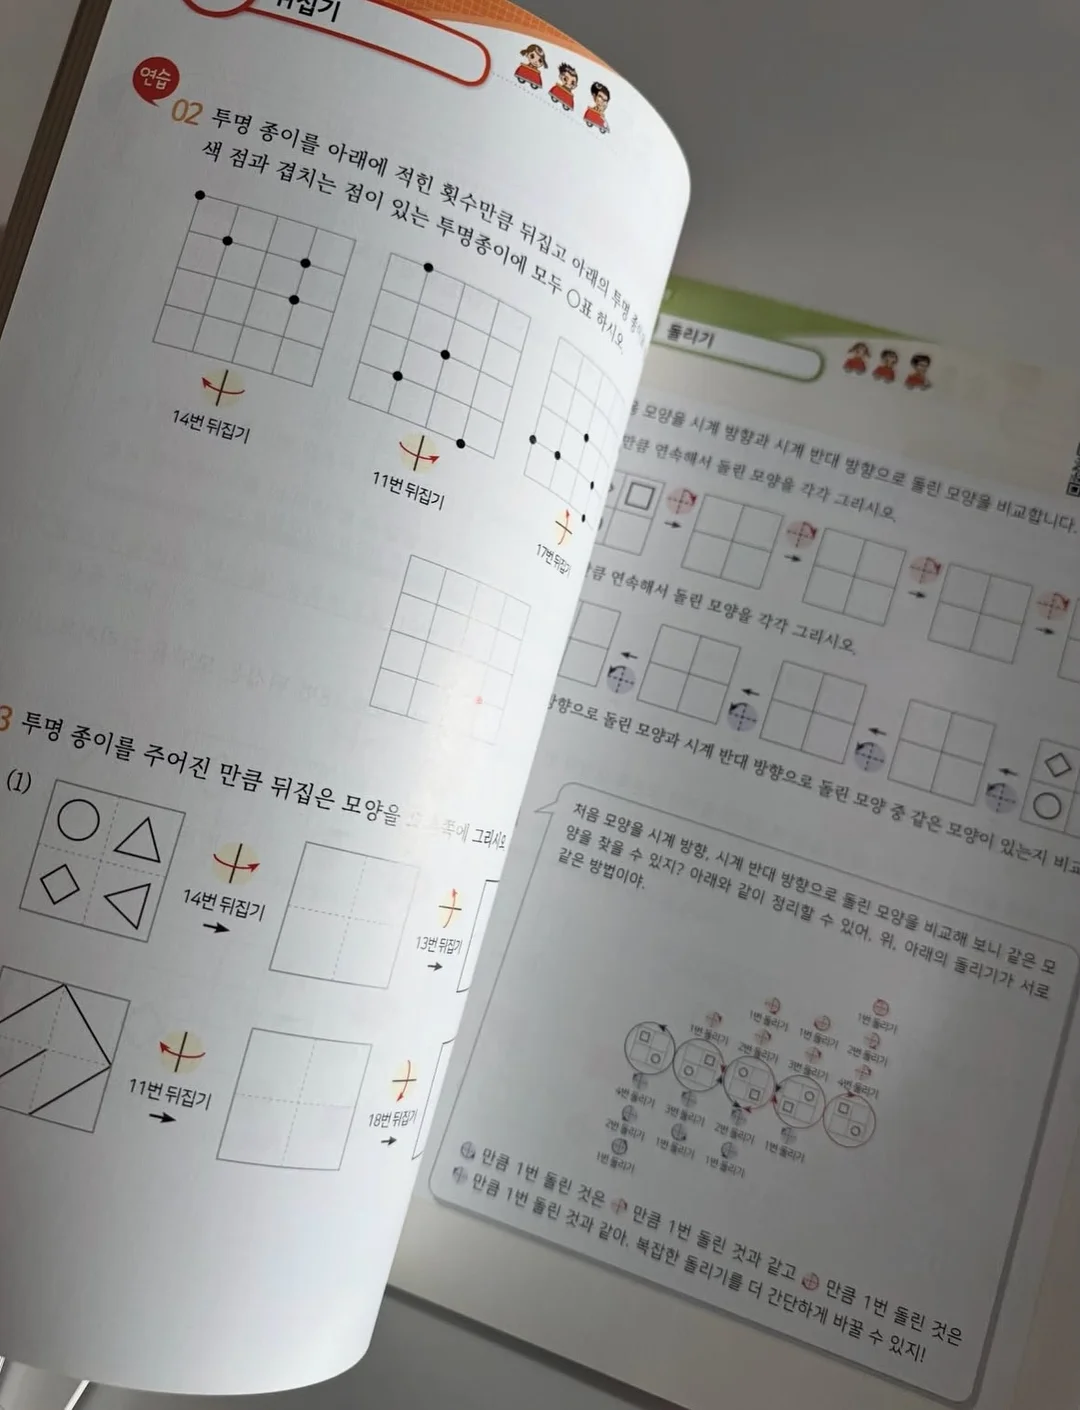 뒤집기
연습
02 투명 종이를 아래에 적힌 횟수만큼 뒤집고 아래의 투명 종이의
색 점과 겹치는 점이 있는 투명종이에 모두 ○표 하시오.
14번 뒤집기
11번 뒤집기
17번 뒤집기
3 투명 종이를 주어진 만큼 뒤집은 모양을 오른쪽에 그리시오
(1)
14번 뒤집기
13번 뒤집기
11번 뒤집기
18번 뒤집기
돌리기
모양을 시계 방향과 시계 반대 방향으로 돌린 모양을 비교합니다.
만큼 연속해서 돌린 모양을 각각 그리시오.
만큼 연속해서 돌린 모양을 각각 그리시오.
방향으로 돌린 모양과 시계 반대 방향으로 돌린 모양 중 같은 모양이 있는지 비교
처음 모양을 시계 방향, 시계 반대 방향으로 돌린 모양을 비교해 보니 같은 모
양을 찾을 수 있지? 아래와 같이 정리할 수 있어. 위, 아래의 돌리기가 서로
같은 방법이야.
1번 돌리기
1번 돌리기 1번 돌리기 2번 돌리기
1번 돌리기 2번 돌리기 3번 돌리기 4번 돌리기
4번 돌리기 3번 돌리기 2번 돌리기 1번 돌리기
2번 돌리기 1번 돌리기 1번 돌리기
1번 돌리기
만큼 1번 돌린 것은 만큼 1번 돌린 것과 같고 만큼 1번 돌린 것은
만큼 1번 돌린 것과 같아. 복잡한 돌리기를 더 간단하게 바꿀 수 있지!